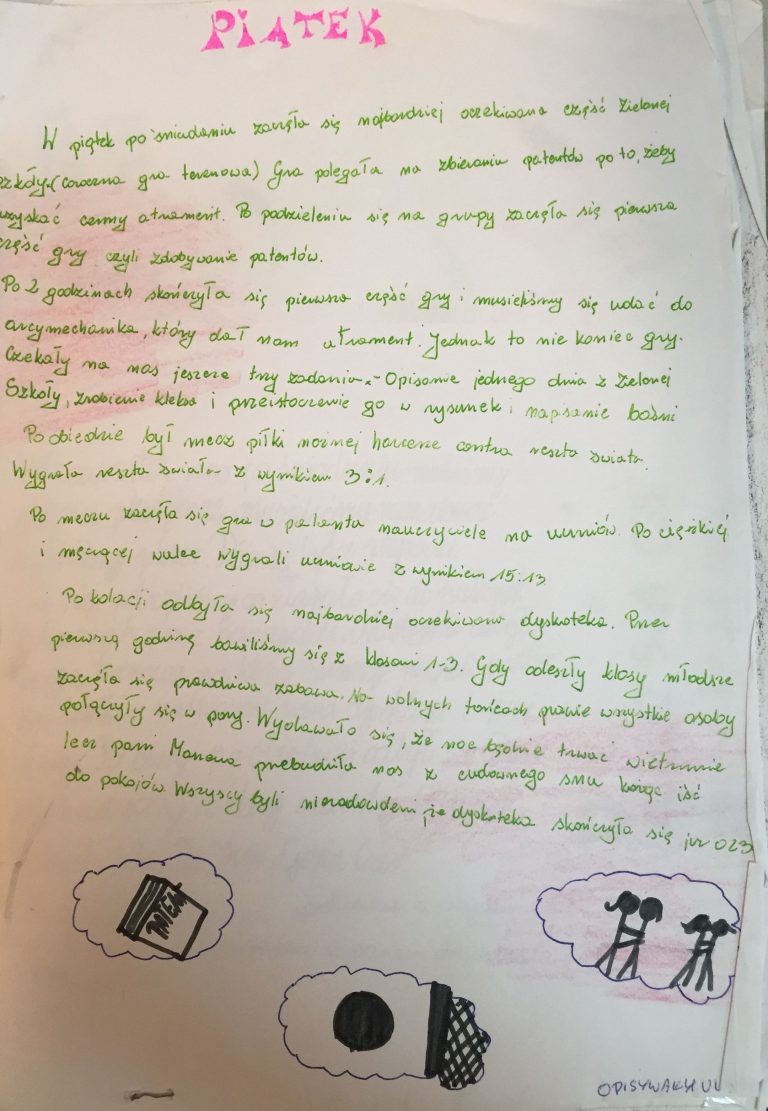 PIĄTEK
W piątek po śniadaniu zaczęła się najbardziej oczekiwana część Zielonej
szkoły.(coroczna gra terenowa) Gra polegała na zbieraniu patentów po to, żeby
uzyskać cenny atrament. Po podzieleniu się na grupy zaczęła się pierwsza
część gry czyli zdobywanie patentów.
Po 2 godzinach skończyła się pierwsza część gry i musieliśmy się udać do
arcymechanika, który dał nam atrament. Jednak to nie koniec gry.
Czekały na nas jeszcze trzy zadania - Opisanie jednego dnia z Zielonej
Szkoły, zrobienie kleksa i przeistoczenie go w rysunek i napisanie baśni
Po obiedzie był mecz piłki nożnej harcerze contra reszta świata.
Wygrała reszta świata z wynikiem 3:1.
Po meczu zaczęła się gra w palanta nauczyciele na uczniów. Po ciężkiej
i męczącej walce wygrali uczniowie z wynikiem 15:13
Po kolacji odbyła się najbardziej oczekiwana dyskoteka. Przez
pierwszą godzinę bawiliśmy się z klasami 1-3. Gdy odeszły klasy młodsze
zaczęła się prawdziwa zabawa. Na wolnych tańcach prawie wszystkie osoby
połączyły się w pary. Wydawało się, że noc będzie trwać wiecznie
lecz pani przebudziła nas z cudownego snu każąc iść
do pokojów. Wszyscy byli niezadowoleni, że dyskoteka skończyła się już o 23
ATRAM
OPISYWAŁ